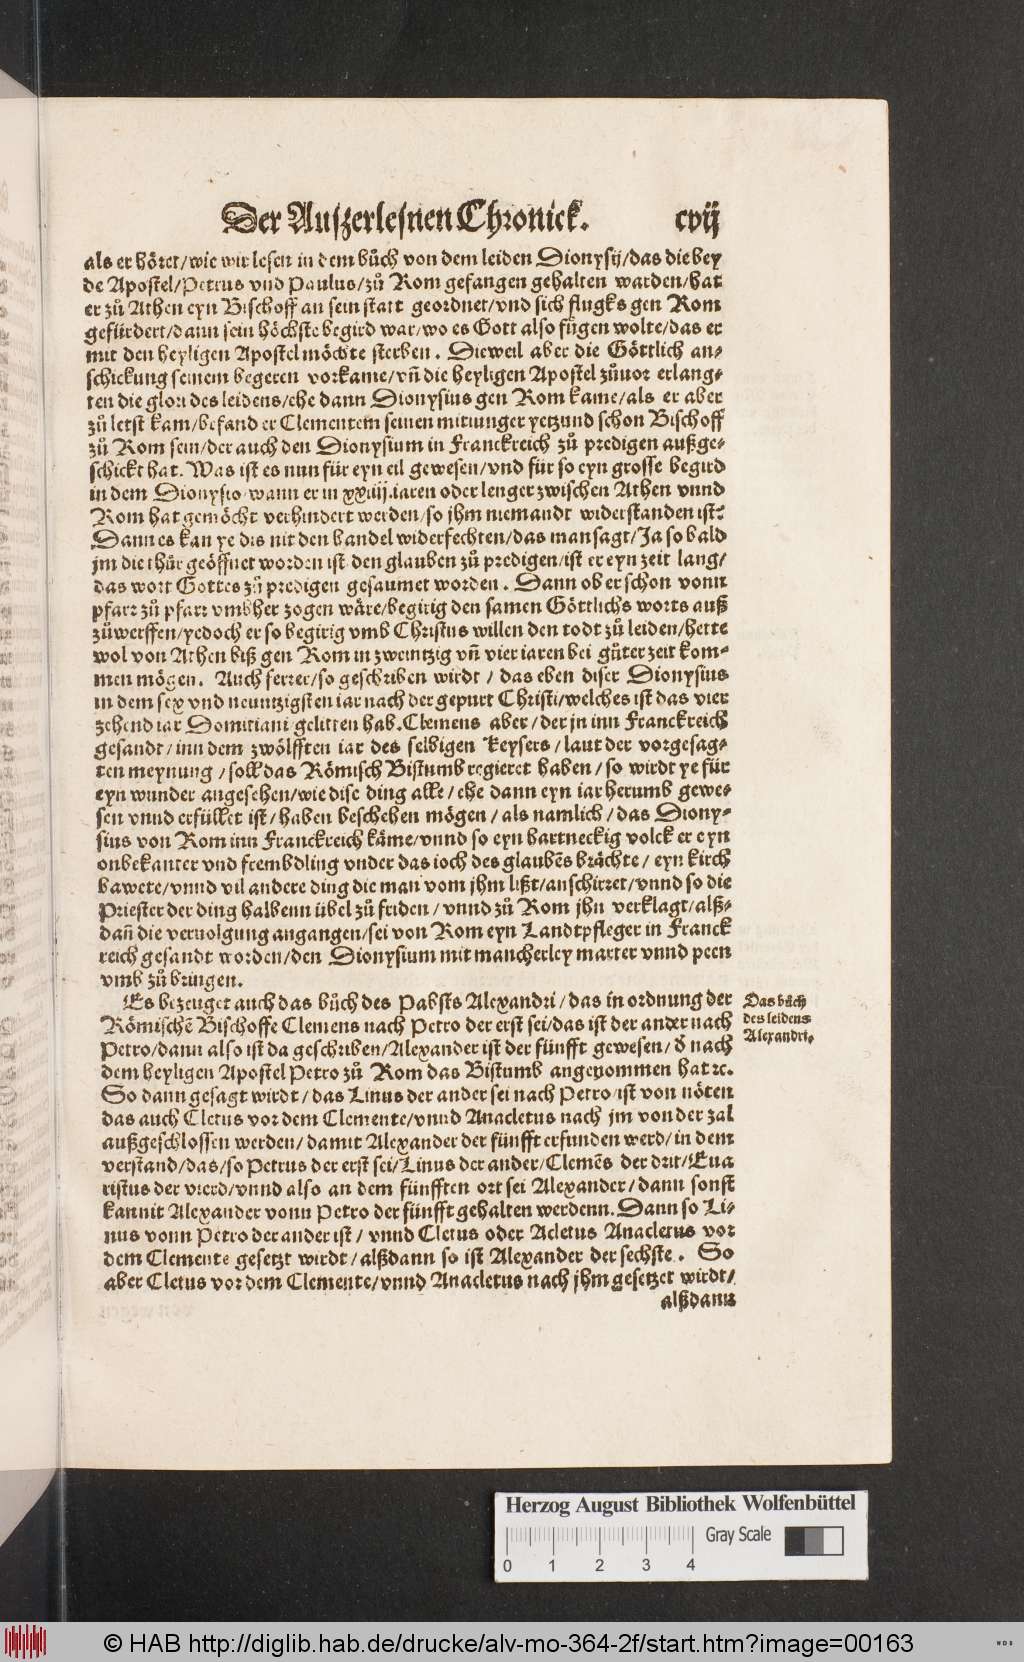 Der Auszerlesnen Chronick. cvij
als er höret/wie wir lesen in dem bůch von dem leiden Dionysij/das die bey
de Apostel/Petrus vnd Paulus/zů Rom gefangen gehalten warden/hat
er zů Athen eyn Bischoff an sein statt geordnet/vnd sich flugks gen Rom
gefürdert/dann sein höchste begird war/wo es Gott also fügen wolte/das er
mit den heyligen Apostel möchte sterben. Dieweil aber die Göttlich an-
schickung seinem begeren vorkame/vñ die heyligen Apostel zůuor erlang-
ten die glori des leidens/ehe dann Dionysius gen Rom kame/als er aber
zů letst kam/befand er Clementem seinen mitiunger yetzund schon Bischoff
zů Rom sein/der auch den Dionysium in Franckreich zů predigen außge-
schickt hat. Was ist es nun für eyn eil gewesen/vnd für so eyn grosse begird
in dem Dionysio/wann er in xxiiij.iaren oder lenger zwischen Athen vnnd
Rom hat gemöcht verhindert werden/so jhm niemandt widerstanden ist?
Dann es kan ye dis nit den handel widerfechten/das man sagt/Ja so bald
jm die thür geöffnet worden ist den glauben zů predigen/ist er eyn zeit lang/
das wort Gottes zů predigen gesaumet worden. Dann ob er schon vonn
pfarr zů pfarr vmbher zogen wäre/begirig den samen Göttlichs worts auß
zůwerffen/yedoch er so begirig vmb Christus willen den todt zů leiden/hette
wol von Athen biß gen Rom in zweintzig vñ vier iaren bei gůter zeit kom-
men mögen. Auch ferrer/so geschriben wirdt / das eben diser Dionysius
in dem sex vnd neuntzigsten iar nach der gepurt Christi/welches ist das vier
zehend iar Domitiani gelitten hab. Clemens aber/der jn inn Franckreich
gesandt/inn dem zwölfften iar des selbigen Keysers/laut der vorgesag-
ten meynung/soll das Römisch Bistumb regieret haben/so wirdt ye für
eyn wunder angesehen/wie dise ding alle/ehe dann eyn iar herumb gewe-
sen vnnd erfüllet ist/haben beschehen mögen/als namlich/das Diony-
sius von Rom inn Franckreich käme/vnnd so eyn hartneckig volck er eyn
onbekanter vnd frembdling vnder das ioch des glaubēs brächte/eyn kirch
bawete/vnnd vil andere ding die man vom jhm lißt/anschirret/vnnd so die
Priester der ding halbenn übel zů friden/vnnd zů Rom jhn verklagt/alß-
dañ die veruolgung angangen/sei von Rom eyn Landtpfleger in Franck
reich gesandt worden/den Dionysium mit mancherley marter vnnd peen
vmb zů bringen.
Es bezeuget auch das bůch des Pabsts Alexandri/das in ordnung der
Römischē Bischoffe Clemens nach Petro der erst sei/das ist der ander nach
Petro/dann also ist da geschriben/Alexander ist der fünfft gewesen/d' nach
dem heyligen Apostel Petro zů Rom das Bistumb angenommen hat ꝛc.
So dann gesagt wirdt/das Linus der ander sei nach Petro/ist von nöten
das auch Cletus vor dem Clemente/vnnd Anacletus nach jm von der zal
außgeschlossen werden/damit Alexander der fünfft erfunden werd/in dem
verstand/das/so Petrus der erst sei/Linus der ander/Clemēs der drit/Eua
ristus der vierd/vnnd also an dem fünfften ort sei Alexander/dann sonst
kannit Alexander vonn Petro der fünfft gehalten werdenn. Dann so Li-
nus vonn Petro der ander ist/vnnd Cletus oder Acletus Anacletus vor
dem Clemente gesetzt wirdt/alßdann so ist Alexander der sechste. So
aber Cletus vor dem Clemente/vnnd Anacletus nach jhm gesetzet wirdt/
alßdann
Das bůch
des leidens
Alexandri.
Herzog August Bibliothek Wolfenbüttel
Gray Scale
0 1 2 3 4
© HAB http://diglib.hab.de/drucke/alv-mo-364-2f/start.htm?image=00163